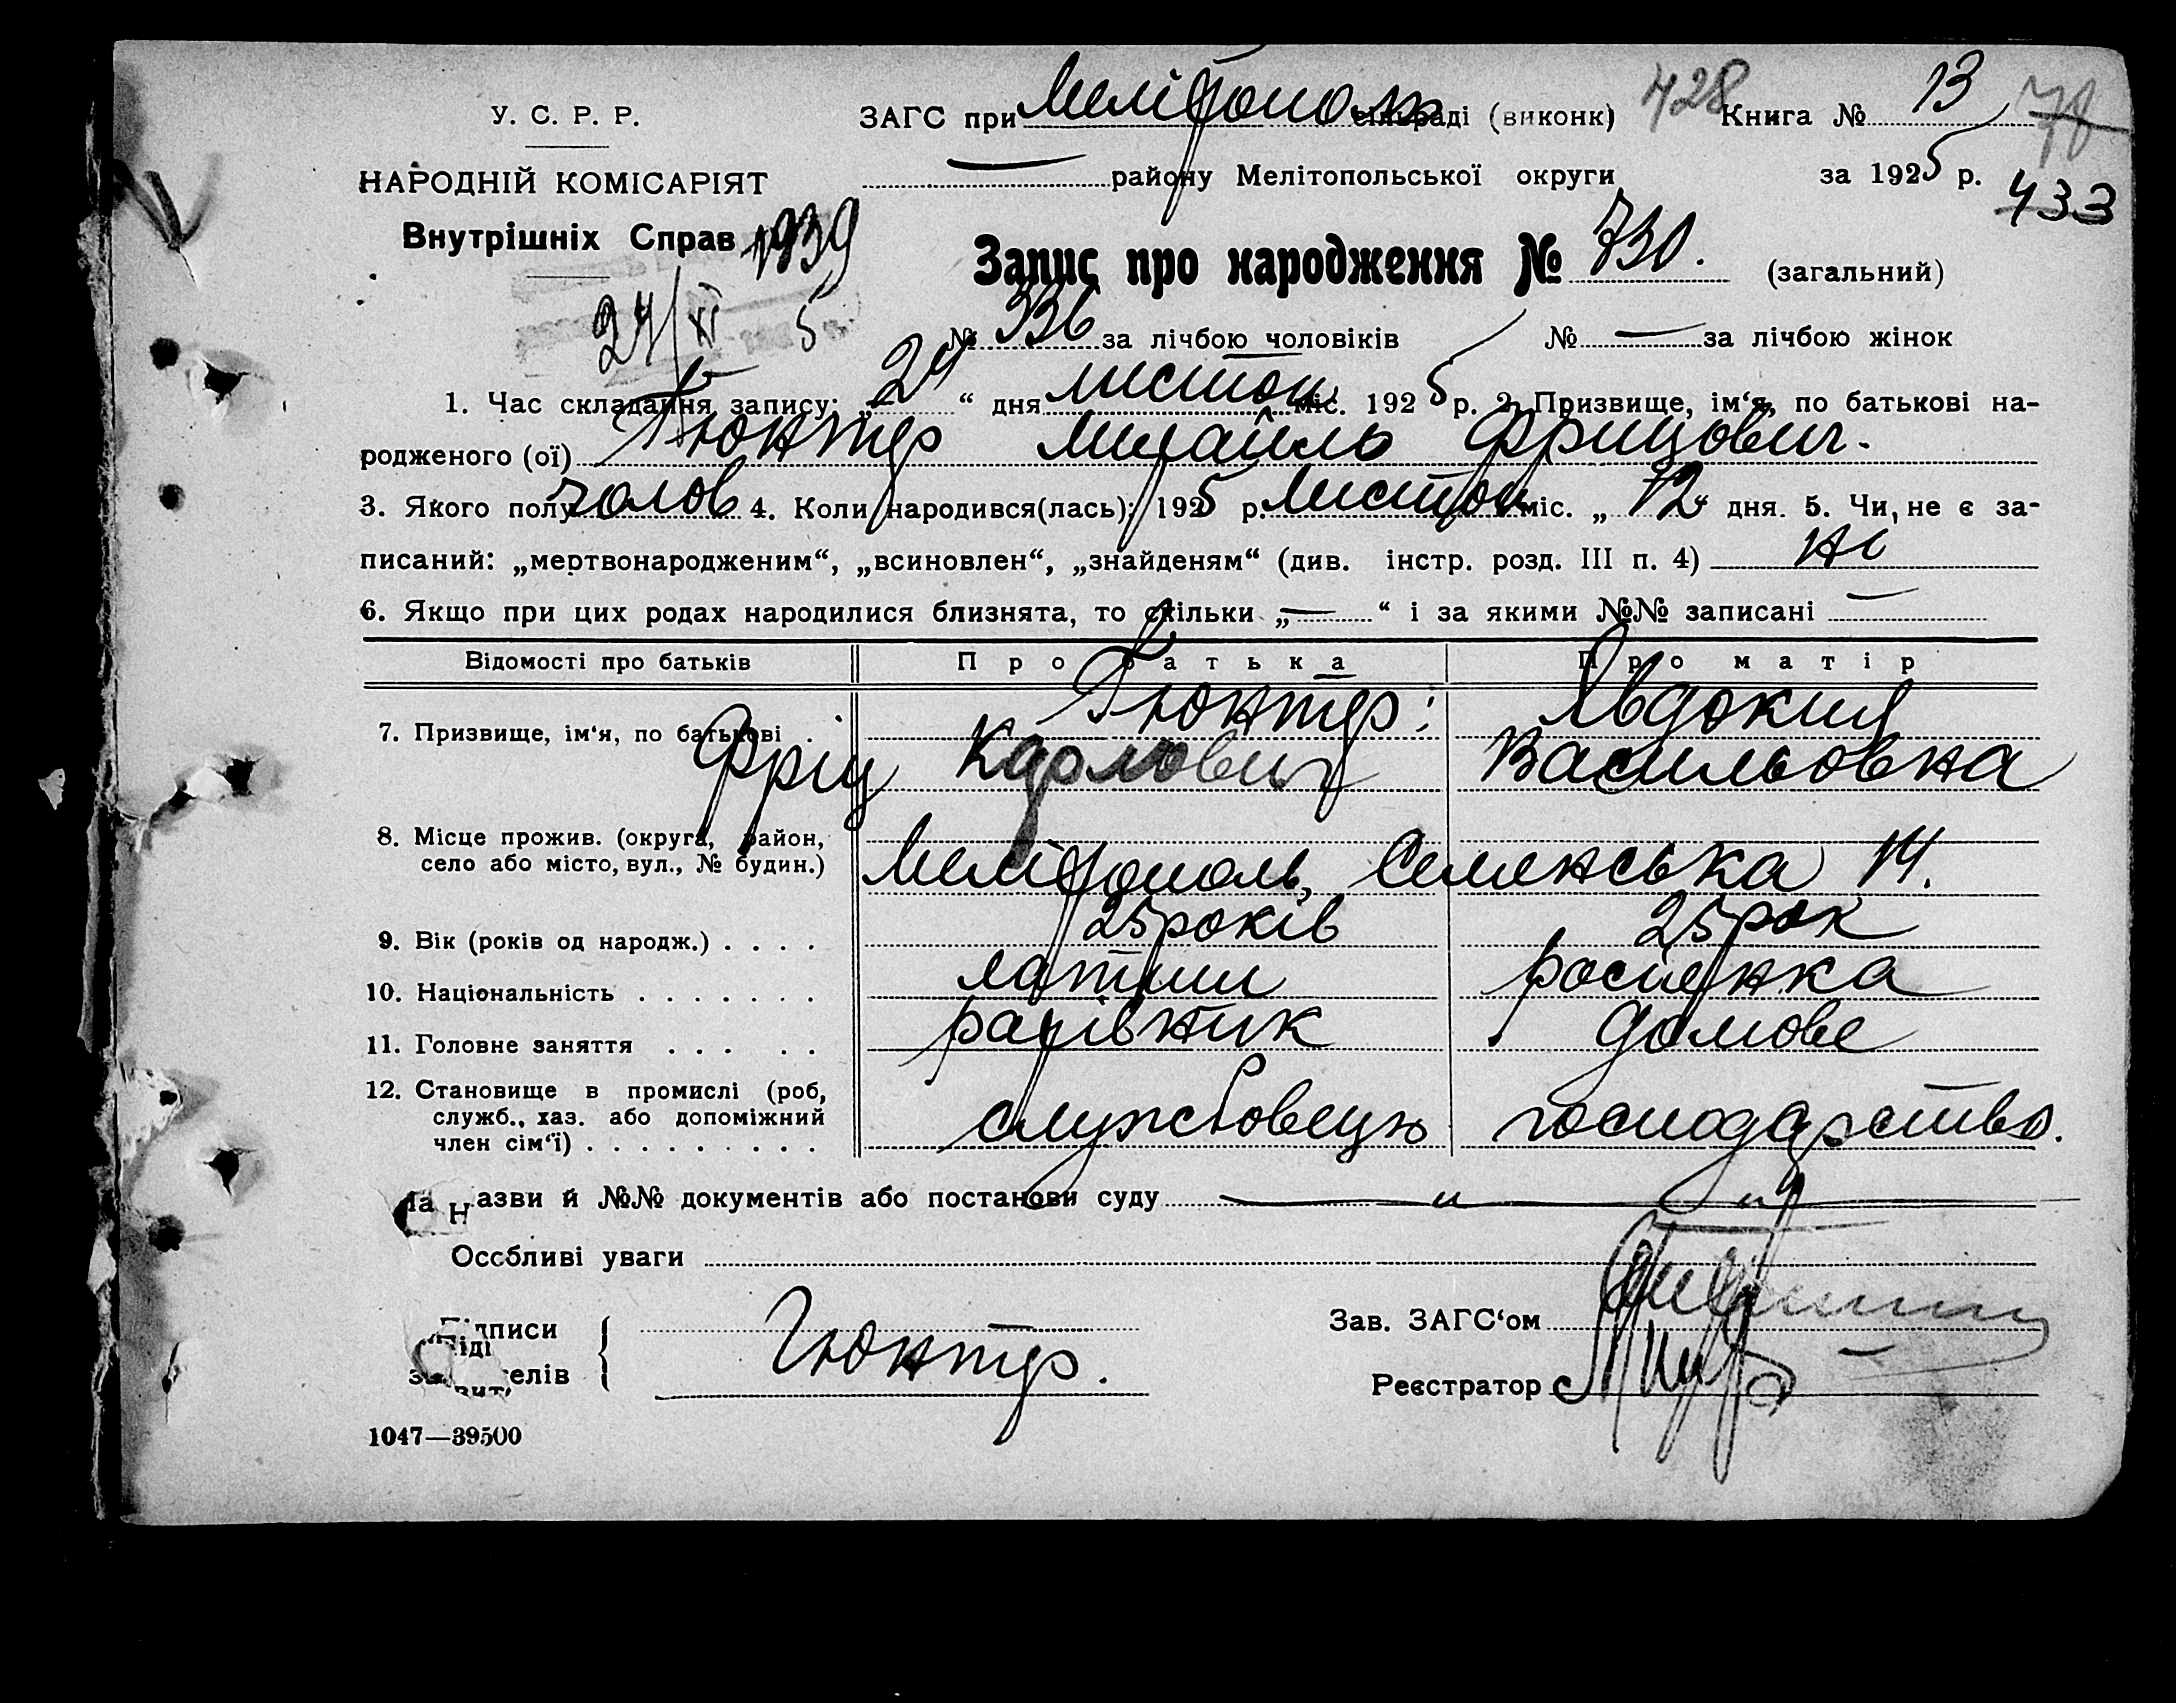 У. С. Р. Р.
НАРОДНІЙ КОМІСАРІЯТ
Внутрішніх Справ
1939
24/XI 5
ЗАГС при Мелітополь сільраді (виконк) 428 Книга № 13
району Мелітопольської округи за 1925 р.
433
Запис про народження № 730. (загальний)
№ 336 за лічбою чоловіків № — за лічбою жінок
1. Час складання запису: „24“ дня листоп. міс. 1925 р. 2. Призвище, ім‘я, по батькові на-
родженого (ої) Гюнтер Михаїль Фрицович.
3. Якого полу чолов 4. Коли народився(лась): 1925 р. листоп міс. „12“ дня. 5. Чи, не є за-
писаний: „мертвонародженим“, „всиновлен“, „знайденям“ (див. інстр. розд. III п. 4) ні
6. Якщо при цих родах народилися близнята, то скільки „—“ і за якими №№ записані —
Відомості про батьків Про батька Про матір
7. Призвище, ім‘я, по батькові . Гюнтер: Явдокия
Фріц Карлович Васильовна
8. Місце прожив. (округа, район,
село або місто, вул., № будин.) Мелітополь, Семенська 14.
9. Вік (років од народж.) . . . . 25 років 25 рок
10. Національність . . . . . . . латиш росіянка
11. Головне заняття . . . . . рахівник домове
12. Становище в промислі (роб,
служб., хаз. або допоміжний
член сім‘ї) . . . . . . . . . службовець господарство.
Назви й №№ документів або постанови суду — „ — „
Особливі уваги
Підписи
Гюнтер.
Зав. ЗАГС‘ом
Реєстратор
1047—39500